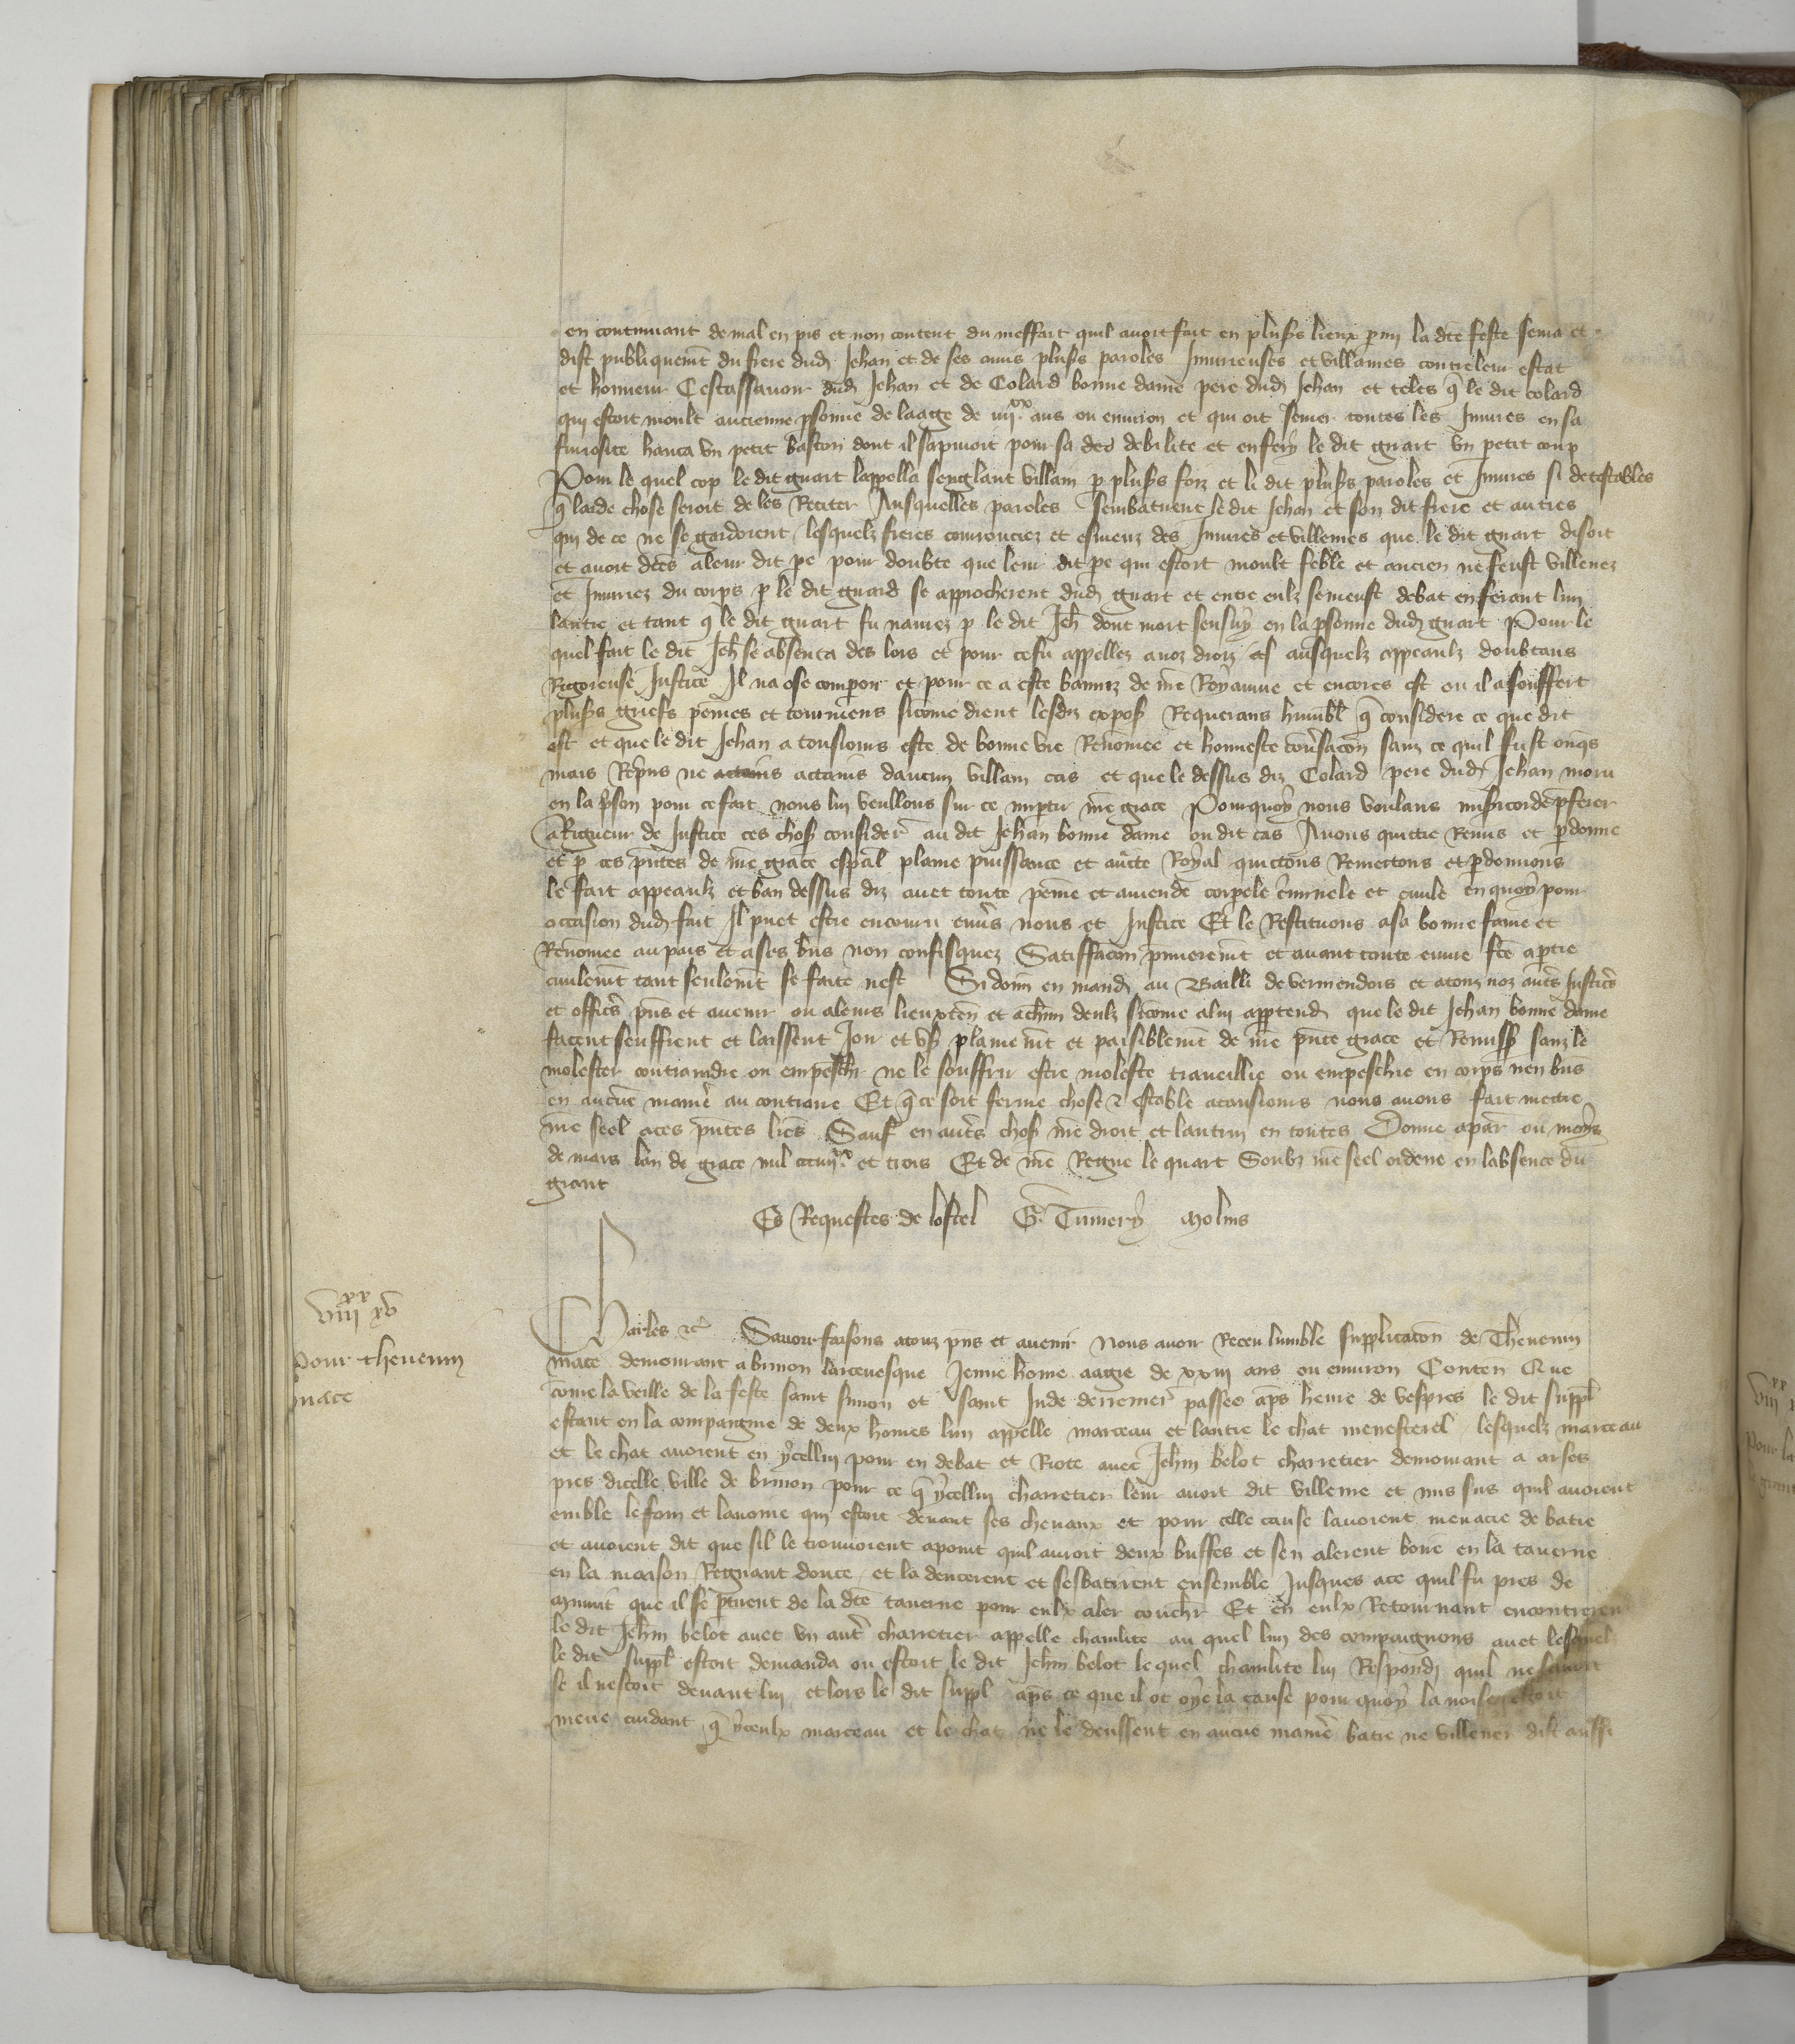 en continuant de mal en pis et non content du meffait quil avoit fait en plus's lieux p'mi la dte feste sema et
dist publiquemt du frere dud Jehan et de ses amis plus's paroles Iniurieuses et villaines contre leur estat
et honneur Cestassavoir dud Jehan et de Colard bonne dame pere dud Jehan et teles q le dit Colard
qui estoit moult ancienne p'sonne de laage de iiijxx ans ou environ et qui oit semer toutes les Iniures en sa
furiosite hauca un petit baston dont il sapuioit pour sa debilite et en fery le dit guart un petit coup
Pour le quel cop le dit guart lappella senglant villain p plus's foiz et li dit plus's paroles et Iniures si detestables
q laide chose seroit de les Reciter Ausquelles paroles sembatirent le dit Jehan et son dit frere et autres
qui de ce ne se gardoient lesquelz freres courrouciez et esmeuz des Iniures et villenies que le dit guart disoit
et avoit dces a leur dit pe pour doubte que leur dit pe qui estoit moult feble et ancien ne feust villenez
et Iniuriez du corps p le dit guard se approcherent dud guart et entre eulz se meust debat en ferant lun
lautre et tant q le dit guart fu navrez p le dit Jeh dont mort sensuy en la p'sonne dud guart Pour le
quel fait le dit Jeh se absenta des lors et pour ce fu appellez a noz droiz et ausquelz appeaulz doubtans
Rigoreuse Justice Il na ose comparoir et pour ce a este banniz de nre Royaume et encores est ou il a souffert
plus's griefs peines et tourmens sicome dient lesdiz expos Requerans humbl q considere ce que dit
est et que le dit Jehan a tousiours este de bonne vie Renomee et honneste conv'sacon sanz ce quil fust onqs
mais Repris ne actains daucun villain cas et que le dessus diz Colard pere dud Jehan moru
en la p'son pour ce fait nous lui veullons sur ce imp'tir nre grace Pourquoy nous voulans mis'icorde p'ferer
a Rigueur de Justice ces chos consider au dit Jehan bonne dame ou dit cas Avons quictie Remis et p'donne
et p ces p'ntes de nre grace esp'al plaine puissance et aucte Royal quictons Remectons et p'donnons
le fait appeaulz et ban dessus diz avec toute peine et amende corpele c'minele et civile en quoy pour
occasion dud fait Il puet estre encouru env's nous et Justice Et le Restituons a sa bonne fame et
Renomee au pais et a ses bns non confisquez Satiffacon p'mieremt et avant toute euvre fte a p'tie
civilemt tant seulemt se faite nest Si donn en mand au Bailli de vermendois et a touz noz aut's Justic's
et offic's p'ns et avenir ou a leurs lieuxten et a chun deulz sicome a lui appartend que le dit Jehan bonne dame
facent seuffrent et laissent Joir et us plainemt et paisiblemt de nre p'nte grace et Remiss sanz le
molester contraindre ou empeschr ne le souffrir estre moleste travaillie ou empeschie en corps nen bns
en aucune manie au contraire Et q ce soit ferme chose & estable a tousiours nous avons fait mectre
nre seel a ces p'ntes l'res Sauf en aut's chos nre droit et lautrui en toutes Donne a par ou moys
de mars lan de grace mil ccciiijxx et trois Et de nre Regne le quart Soubz nre seel ordene en labsence du
grant
Es Requestes de lostel G. Tumery Molins
viijxx xv
Pour thevenin
mace
Charles &c Savoir faisons a touz p'ns et avenir Nous avoir Receu lumble supplicacon de Thevenin
mace demourant a brinon larcevesque Jeune home aagie de xxiij ans ou environ Conten Que
come la veille de la feste saint simon et saint Jude derrener passee aps heure de vespres le dit suppl
estant en la compaignie de deux homes lun appelle marceau et lautre le chat menesterel lesquelz marceau
et le chat avoient en ycellui jour eu debat et Riote avec Jehin belot charretier demourant a arses
pres dicelle ville de brinon pour ce q ycellui charretier leur avoit dit villenie et mis sus quil avoient
emble le foin et lavoine qui estoit devant ses chevaux et pour celle cause lavoient menacie de batre
et avoient dit que sil le trouvoient a point quil auroit deux buffes et sen alerent boire en la taverne
en la maison Regnaut douce et la dencerent et sesbatirent ensemble Jusques a ce quil fu pres de
mynuit que il se p'tirent de la dte taverne pour eulx aler couchr Et en eulx Retournant encontreren
le dit Jehin belot avec un autr charretier appelle chamlite au quel lun des compaignons avec lesquel
le dit suppl estoit demanda ou estoit le dit Jehin belot le quel chamlite lui Respondi quil ne savoit
se il nestoit devant lui et lors le dit suppl aps ce que il ot oye la cause pour quoy la noise estoit
meue cuidant q yceulx marceau et le chat ne le deussent en aucune manie batre ne villener dist aussi